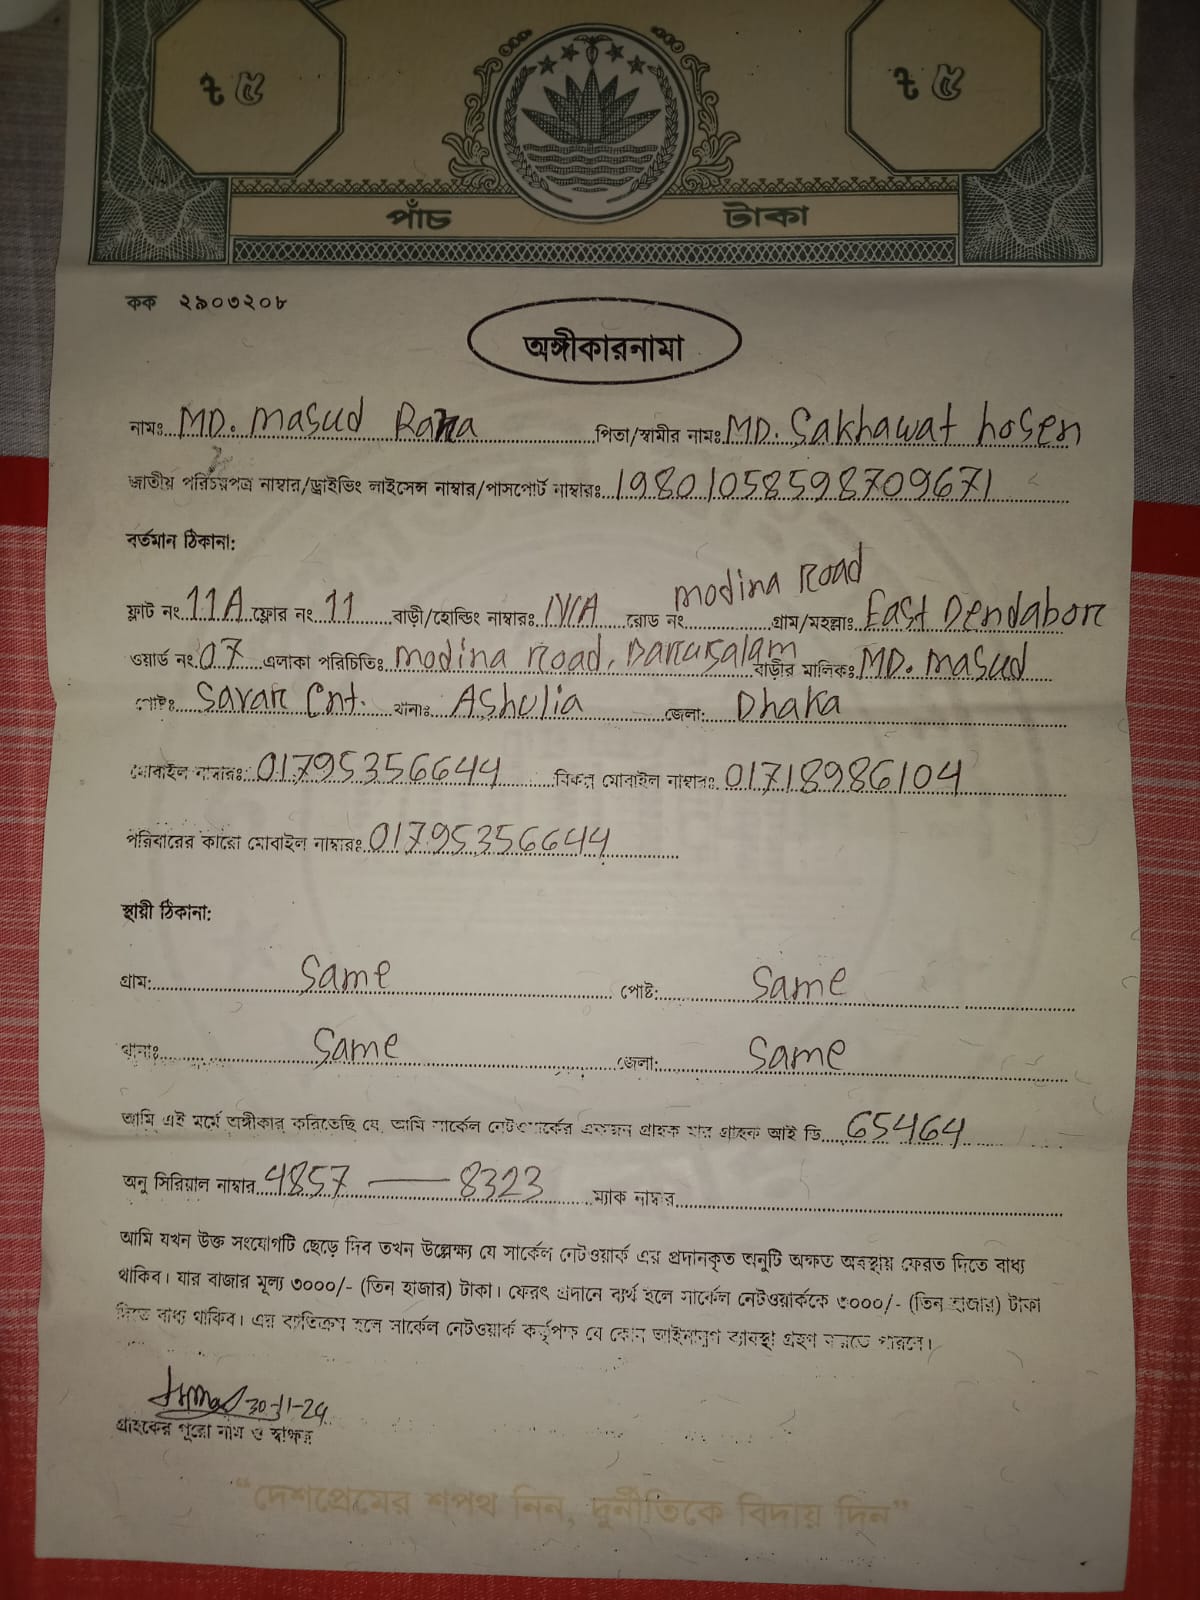 ৳ ৫ ৳ ৫
পাঁচ টাকা
কক ২৯০৩২০৮
অঙ্গীকারনামা
নামঃ MD. Masud Rana পিতা/স্বামীর নামঃ MD. Sakhawat hosen
জাতীয় পরিচয়পত্র নাম্বার/ড্রাইভিং লাইসেন্স নাম্বার/পাসপোর্ট নাম্বারঃ 19801058598709671
বর্তমান ঠিকানা:
ফ্লাট নং 11A ফ্লোর নং 11 বাড়ী/হোল্ডিং নাম্বারঃ N/A রোড নং Modina Road গ্রাম/মহল্লাঃ East Dendabor
ওয়ার্ড নং 07 এলাকা পরিচিতিঃ Modina Road, Darusalam বাড়ীর মালিকঃ MD. Masud
পোষ্টঃ Savar Cnt. থানাঃ Ashulia জেলা: Dhaka
মোবাইল নাম্বারঃ 01795356644 বিকল্প মোবাইল নাম্বারঃ 01718986104
পরিবারের কারো মোবাইল নাম্বারঃ 01795356644
স্থায়ী ঠিকানা:
গ্রাম: Same পোষ্ট: Same
থানাঃ Same জেলা: Same
আমি এই মর্মে অঙ্গীকার করিতেছি যে, আমি সার্কেল নেটওয়ার্কের একজন গ্রাহক যার গ্রাহক আই ডি 65464
অনু সিরিয়াল নাম্বার 4857 — 8323 ম্যাক নাম্বার
আমি যখন উক্ত সংযোগটি ছেড়ে দিব তখন উল্লেক্ষ্য যে সার্কেল নেটওয়ার্ক এর প্রদানকৃত অনুটি অক্ষত অবস্থায় ফেরত দিতে বাধ্য
থাকিব। যার বাজার মূল্য ৩০০০/- (তিন হাজার) টাকা। ফেরৎ প্রদানে ব্যর্থ হলে সার্কেল নেটওয়ার্ককে ৩০০০/- (তিন হাজার) টাকা
দিতে বাধ্য থাকিব। এর ব্যতিক্রম হলে সার্কেল নেটওয়ার্ক কর্তৃপক্ষ যে কোন আইনানুগ ব্যবস্থা গ্রহণ করতে পারবে।
30-11-24
গ্রাহকের পূরো নাম ও স্বাক্ষর
“দেশপ্রেমের শপথ নিন, দুর্নীতিকে বিদায় দিন”